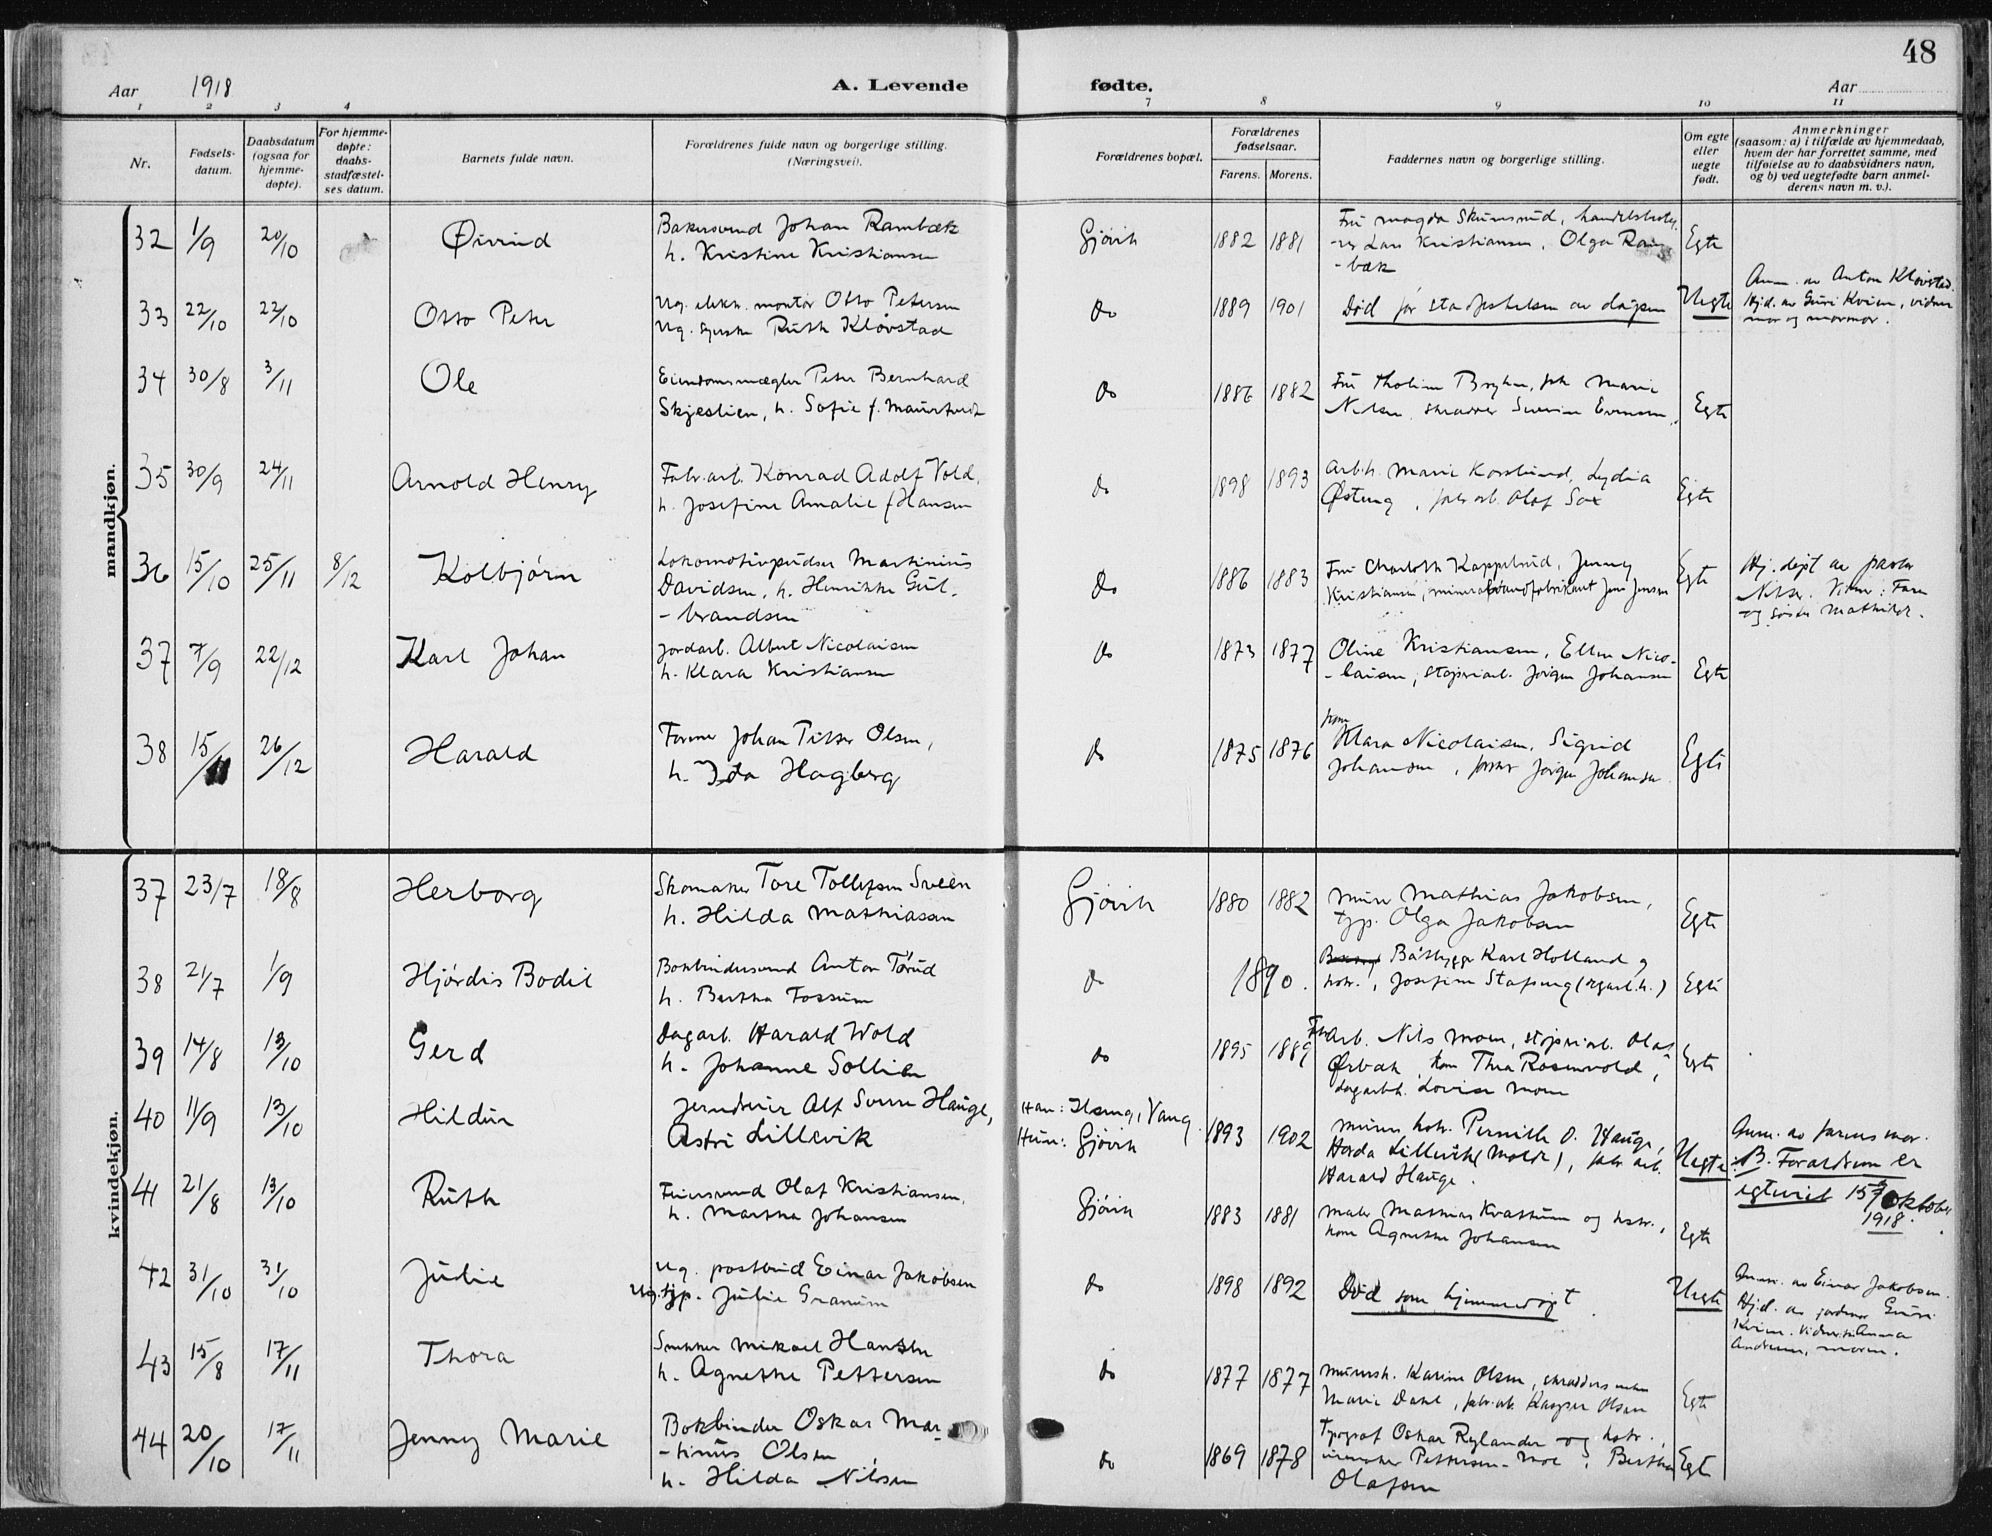 48
Aar 1918 A. Levende fødte. Aar
1 2 3 4 7 8 9 10 11
Nr.
Fødsels-
datum.
Daabsdatum
(ogsaa for
hjemme-
døpte).
For hjemme-
døpte:
daabs-
stadfæstel-
ses datum.
Barnets fulde navn.
Forældrenes fulde navn og borgerlige stilling.
(Næringsvei).
Forældrenes bopæl.
Forældrenes
fødselsaar.
Farens. Morens.
Faddernes navn og borgerlige stilling.
Om egte
eller
uegte
født.
Anmerkninger
(saasom: a) i tilfælde av hjemmedaab,
hvem der har forrettet samme, med
tilføielse av to daabsvidners navn,
og b) ved uegtefødte barn anmel-
derens navn m. v.).
mandkjøn.
32 1/9 20/10 Øivind
Bakersvend Johan Rambæk
h. Kristine Kristiansen
Gjøvik 1882 1881
Fru Magda Skunsrud,
Lars Kristiansen, Olga Ram
-bæk
Egte
33 22/10 22/10 Otto Peter
Ug. elektr. montør Otto Petersen
Ug. Ruth Kløvstad
do 1889 1901
Død før stadfestelsen av dåpen
Uegte
Anm. av Anton Kløvstad.
Hjd. av Guri Kvien, vidner
mor og mormor.
34 30/8 3/11 Ole
Eiendomsmægler Peter Bernhard
Skjeslien, h. Sofie f.
do 1886 1882
Fru Marie
Nilsen, skrædder Evensen
Egte
35 30/9 24/11 Arnold Henry
Fabr.arb. Konrad Adolf Vold,
h. Josefine Amalie f. Hansen
do 1898 1893
Arb.h. Marie Lydia
fabr.arb. Olaf
Egte
36 15/10 25/11 8/12 Kolbjørn
Lokomotivpudser Martinius
Davidsen, h. Henrikke Gul-
-brandsen
do 1886 1883
Fru Charlotte Kappelrud, Jenny
Kristiansen, mineralvandfabrikant Jens Jensen
Egte
Hj. døpt av pastor
Nilsen. Vidner: Faren
og søster Mathilde.
37 7/9 22/12 Karl Johan
Jordarb. Albert Nicolaisen
h. Klara Kristiansen
do 1873 1877
Oline Kristiansen, Ellen Nico-
-laisen, støperiarb. Jørgen Johansen
Egte
38 15/11 26/12 Harald
Former Johan Peter Olsen,
h. Ida Hagberg
do 1875 1876
Klara Nicolaisen, Sigrid
Johansen, former Jørgen Johansen
Egte
kvindekjøn.
37 23/7 18/8 Herborg
Skomaker Tore Tollefsen Sveen
h. Hilda Mathiassen
Gjøvik 1880 1882
Murer Mathias Jakobsen,
typ. Olga Jakobsen
Egte
38 21/7 1/9 Hjørdis Bodil
Bokbindersvend Anton Tørud
h. Bertha Fossum
do 1890.
Båtbygger Karl Holland og
hstr., Josefine
Egte
39 14/8 13/10 Gerd
Dagarb. Harald Wold
h. Johanne Sollien
do 1895 1889
Arb. Nils Moen, støperiarb. Olaf
Ørbæk, Thea Rosenvold,
dagarbh. Lovise Moen
Egte
40 11/9 13/10 Hildur
Jerndreier Alf Sverre Hauge,
Astri Lillevik
Han: Ilseng, Vang
Hun: Gjøvik 1893 1902
Murers hstr. Pernille O. Hauge,
Horda Lillevik (Molde), fabr. arb.
Harald Hauge.
Uegte
Anm. av farens mor.
N.B. Forældrene er
egteviet 15 oktober
1918.
41 21/8 13/10 Ruth
Feiersvend Olaf Kristiansen,
h. Martha Johansen
Gjøvik 1883 1881
Maler Mathias Kvathum og hstr.,
Agnethe Johansen
Egte
42 31/10 31/10 Julie
Ug. postbud Einar Jakobsen
Ug. typ. Julie Granum
do 1898 1892
Død som hjemmedøpt
Uegte
Anm. av Einar Jakobsen.
Hjd. av jordmor Guri
Kvien. Vidner: Anna
43 15/8 17/11 Thora
Snekker Mikael Hansen
h. Agnethe Pettersen
do 1877 1877
Murersh. Karine Olsen,
Marie Dahl, fabr.arb. Kasper Olsen
Egte
44 20/10 17/11 Jenny Marie
Bokbinder Oskar Mar-
-tinius Olsen,
h. Hilda Nilsen
do 1869 1878
Typograf Oskar Rylander og hstr.,
urmaker Pettersen-Moe, Bertha
Olafsen
Egte